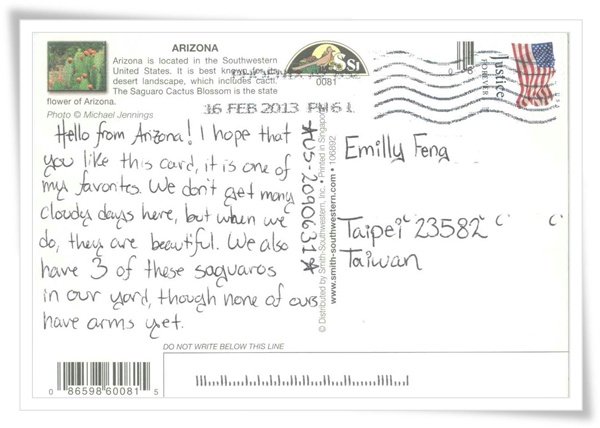 ARIZONA
Arizona is located in the Southwestern
United States. It is best known for its
desert landscape, which includes cacti.
The Saguaro Cactus Blossom is the state
flower of Arizona.
Photo © Michael Jennings
SSI
0081
16 FEB 2013 PM 6 L
Justice
FOREVER
Hello from Arizona! I hope that
you like this card, it is one of
my favorites. We don't get many
cloudy days here, but when we
do, they are beautiful. We also
have 3 of these saguaros
in our yard, though none of ours
have arms yet.
*US-2090631*
© Distributed by Smith-Southwestern, Inc. • Printed in Singapore
www.smith-southwestern.com • 106892
Emilly Feng
Taipei 23582
Taiwan
DO NOT WRITE BELOW THIS LINE
0 86598 60081 5